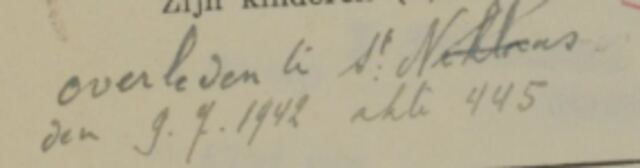 Zijn kinderen
overleden te St. Niklaas
den 9.7.1942 akte 445